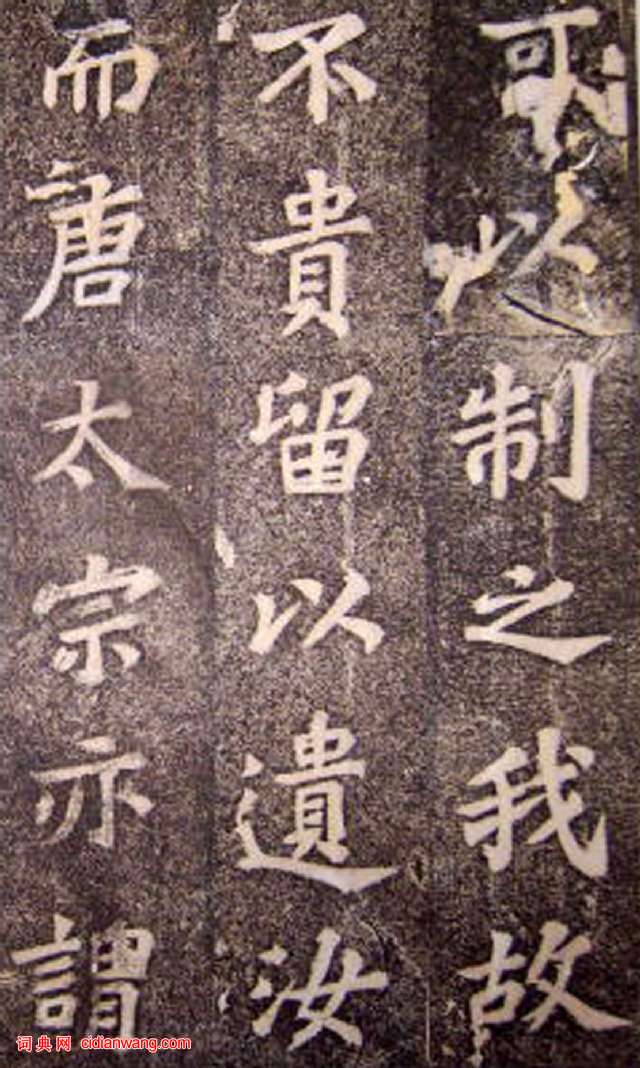 可以制之我故
不貴留以遺汝
而唐太宗亦謂
词典网 cidianwang.com